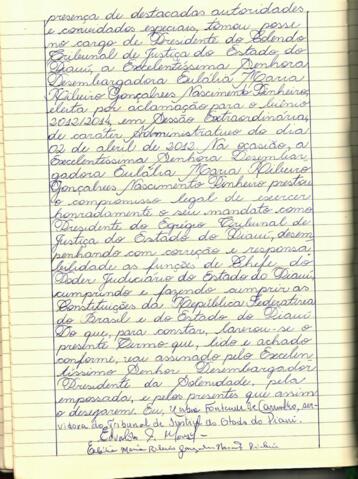 presença de destacadas autoridades
e convidados especiais, tomou posse
no cargo de Presidente do Egrégio
Tribunal de Justiça do Estado do
Piauí, a Excelentíssima Senhora
Desembargadora Eulália Maria
Ribeiro Gonçalves Nascimento Pinheiro,
eleita por aclamação para o biênio
2012/2014, em Sessão Extraordinária,
de caráter Administrativo do dia
02 de abril de 2012. Na ocasião, a
Excelentíssima Senhora Desembar
gadora Eulália Maria Ribeiro
Gonçalves Nascimento Pinheiro prestou
o compromisso legal de exercer
honradamente o seu mandato como
Presidente do Egrégio Tribunal de
Justiça do Estado do Piauí, desem
penhando com correção e responsa
bilidade as funções de Chefe do
Poder Judiciário do Estado do Piauí,
cumprindo e fazendo cumprir as
Constituições da República Federativa
do Brasil e do Estado do Piauí.
Do que, para constar, lavrou-se o
presente Termo que, lido e achado
conforme, vai assinado pelo Excelen
tíssimo Senhor Desembargador
Presidente da Solenidade, pela
empossada, e pelos presentes que assim
o desejarem. Eu, Fontenele de Carvalho, ser-
vidora do Tribunal de Justiça do Estado do Piauí.
Eulália Maria Ribeiro Gonçalves Nasct. Pinheiro